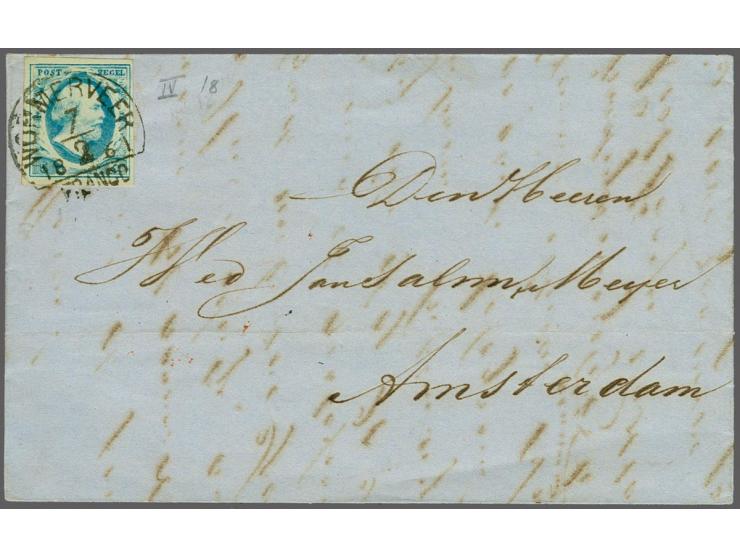 POST ZEGEL
WORMERVEER
7/2
18 
FRANCO
IV 18
Den Heeren
Wed Jan Salm & Meyer
Amsterdam